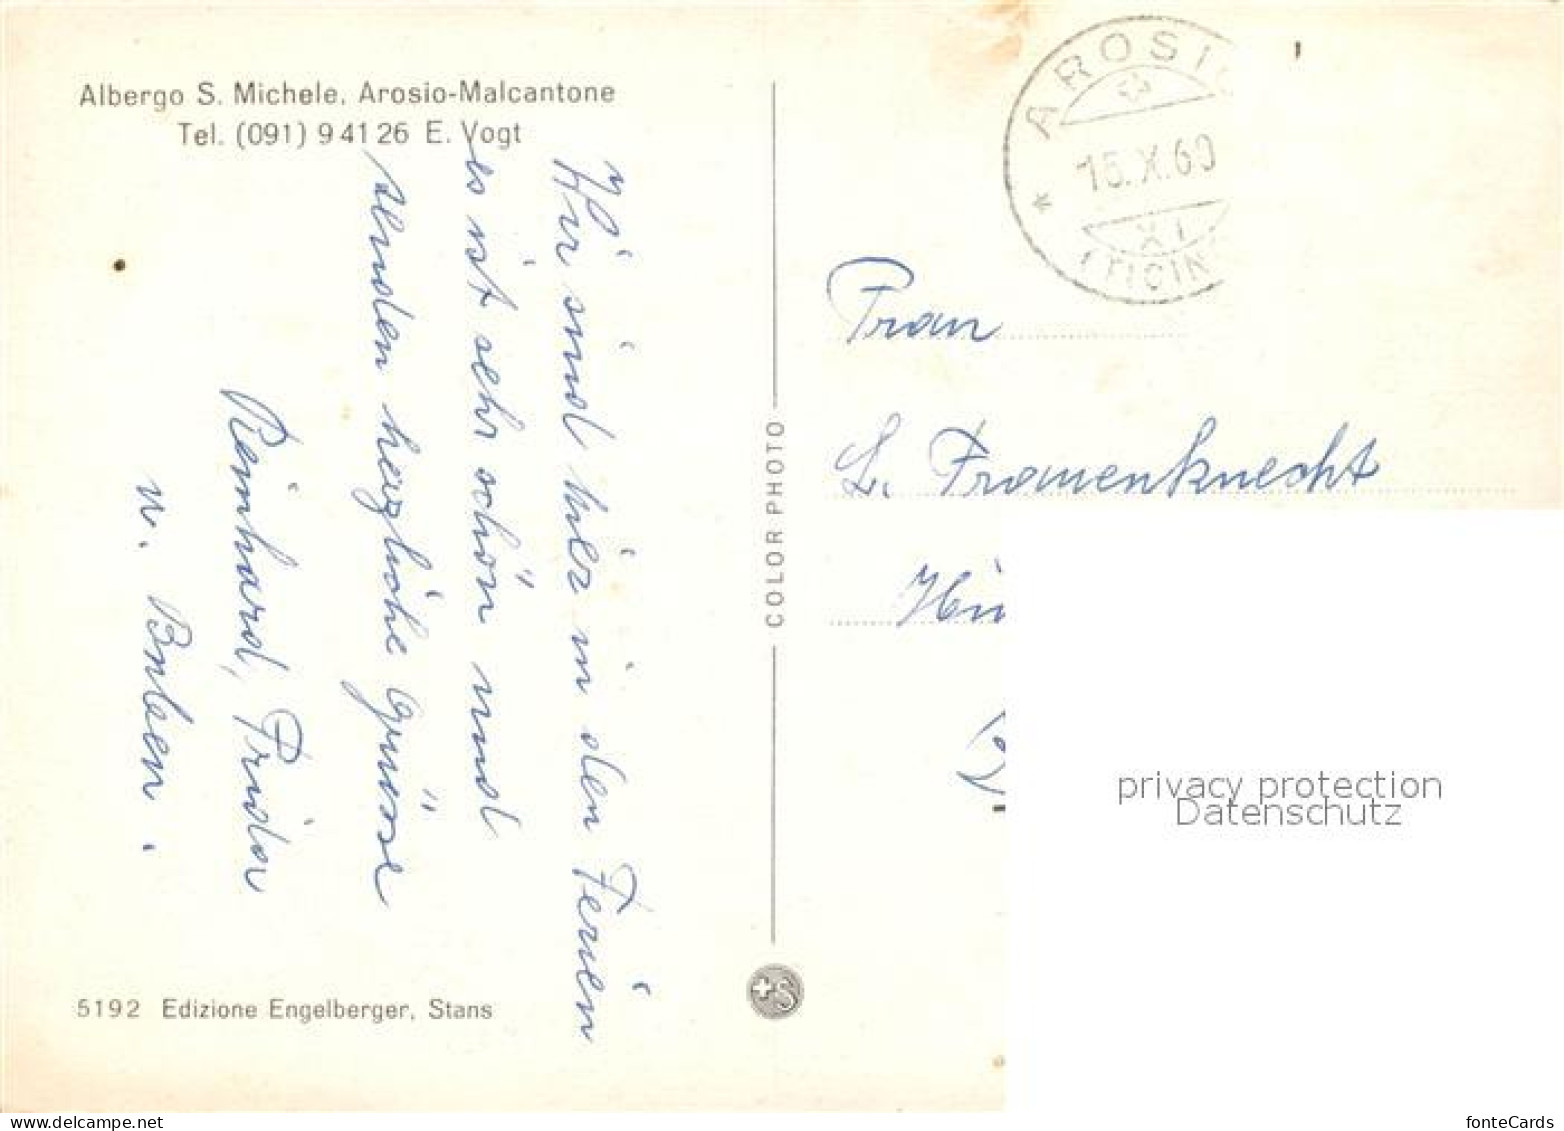 Albergo S. Michele, Arosio-Malcantone
Tel. (091) 9 41 26 E. Vogt
Wir sind hier in den Ferien
es ist sehr schön und
senden herzliche Grüsse
Reinhard, Fridor
u. Buben.
5192 Edizione Engelberger, Stans
COLOR PHOTO
S
AROSIO
15.X.60
XI
(TICIN
Frau
L. Frauenknecht
privacy protection
Datenschutz
fonteCards